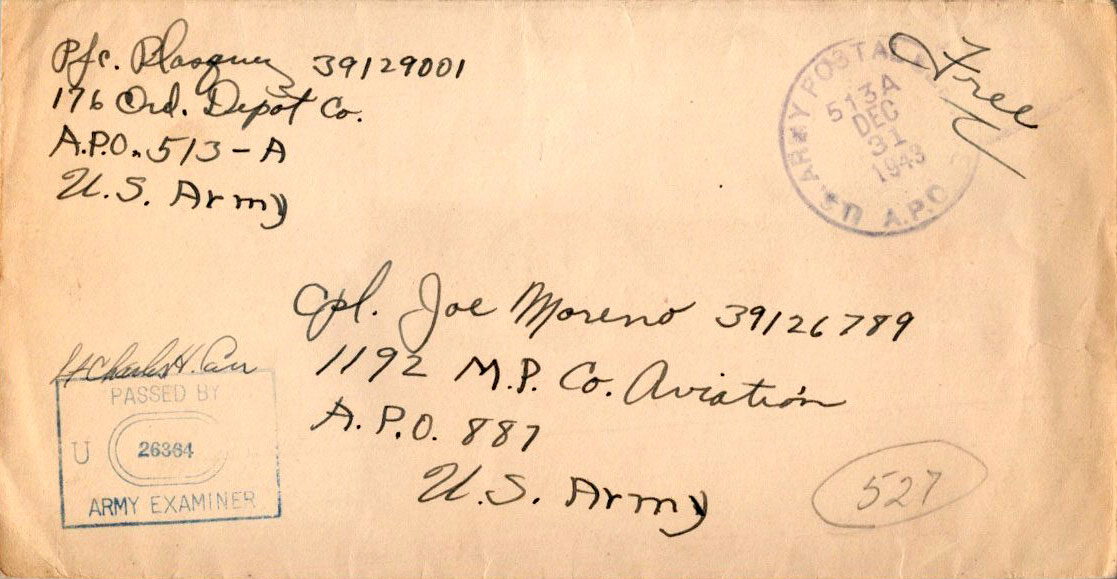 Pfc. Blasquez 39129001
176 Ord. Depot Co.
A.P.O. 513-A
U.S. Army
Free
U.S. ARMY POSTAL
A.P.O.
513A
DEC
31
1943
Cpl. Joe Moreno 39126789
1192 M.P. Co. Aviation
A.P.O. 887
U.S. Army
Lt Charles H. Carr
PASSED BY
U
26364
ARMY EXAMINER
527